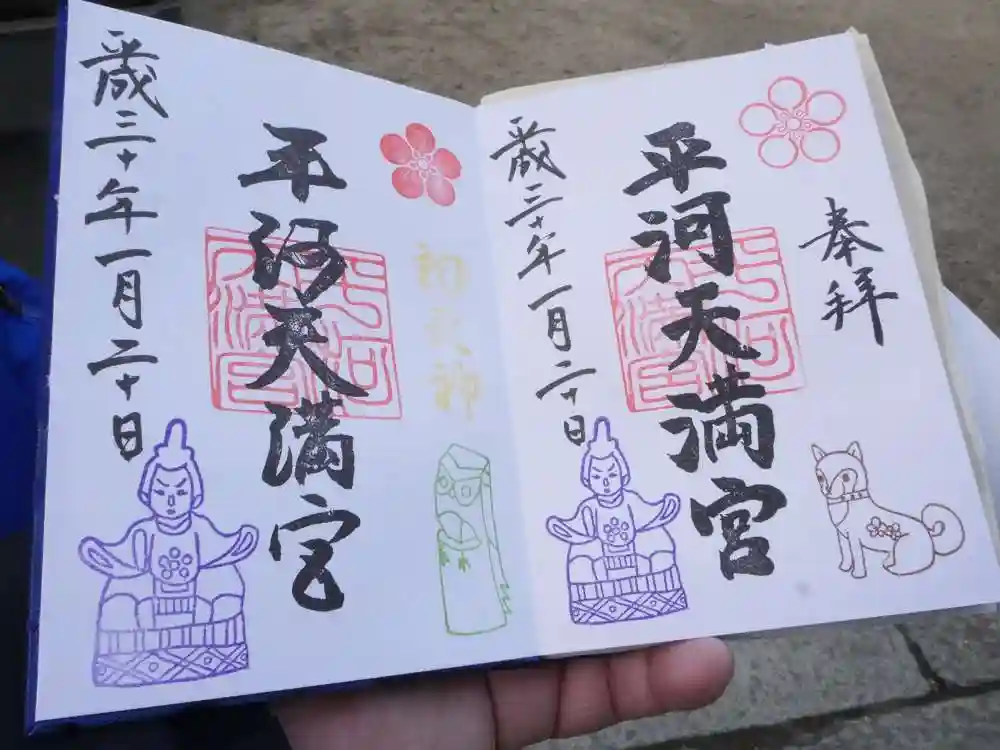 奉拝
平河天満宮
平河天満宮
歳三十年一月二十日
初天神
平河天満宮
歳三十年一月二十日